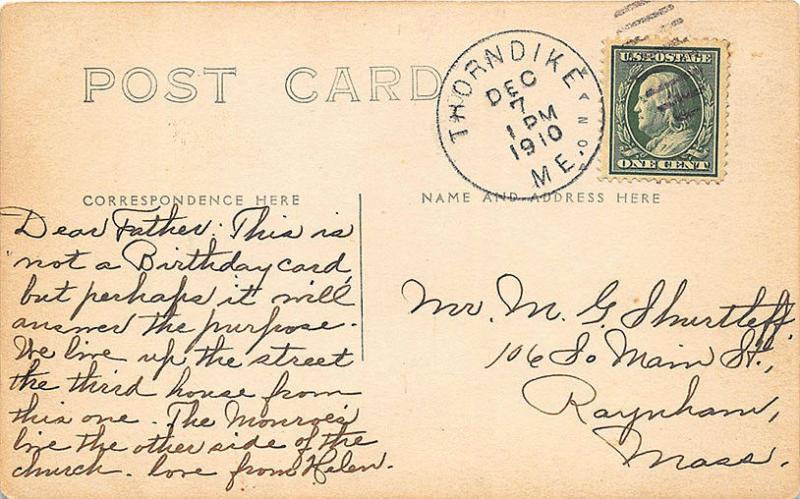 POST CARD
THORNDIKE
DEC
7
1 PM
1910
ME.
U.S. POSTAGE
ONE CENT
CORRESPONDENCE HERE
NAME AND ADDRESS HERE
Dear Father: This is
not a Birthday card,
but perhaps it will
answer the purpose.
We live up the street
the third house from
this one. The Monroe's
live the other side of the
church. love from Helen.
Mr. M. G. Shurtleff
106 So Main St.,
Raynham,
Mass.